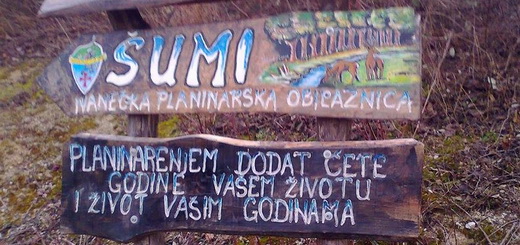 ŠUMI
IVANEČKA PLANINARSKA OBILAZNICA
PLANINARENJEM DODAT ČETE
GODINE VAŠEM ŽIVOTU
I ŽIVOT VAŠIM GODINAMA